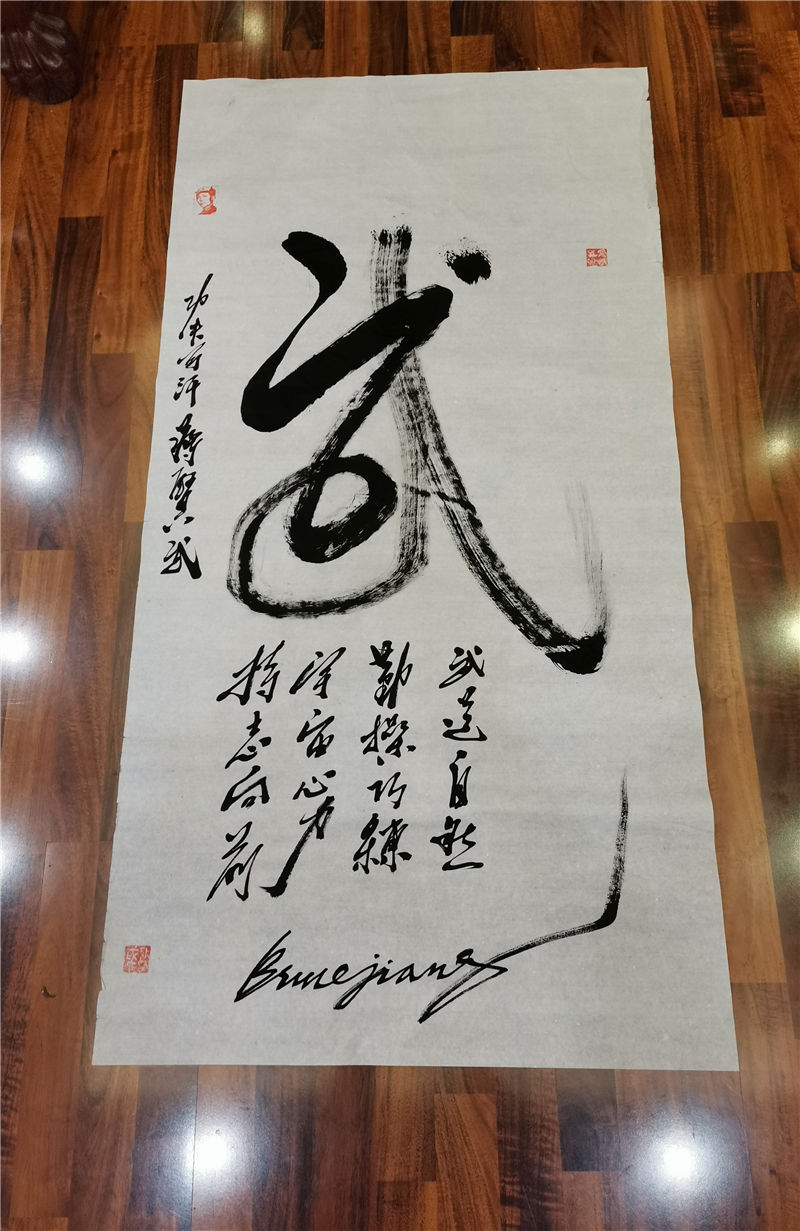 武
武道自然
勤操巧練
心力
持志向前
功夫可汗 蔣 武
Brucejiang